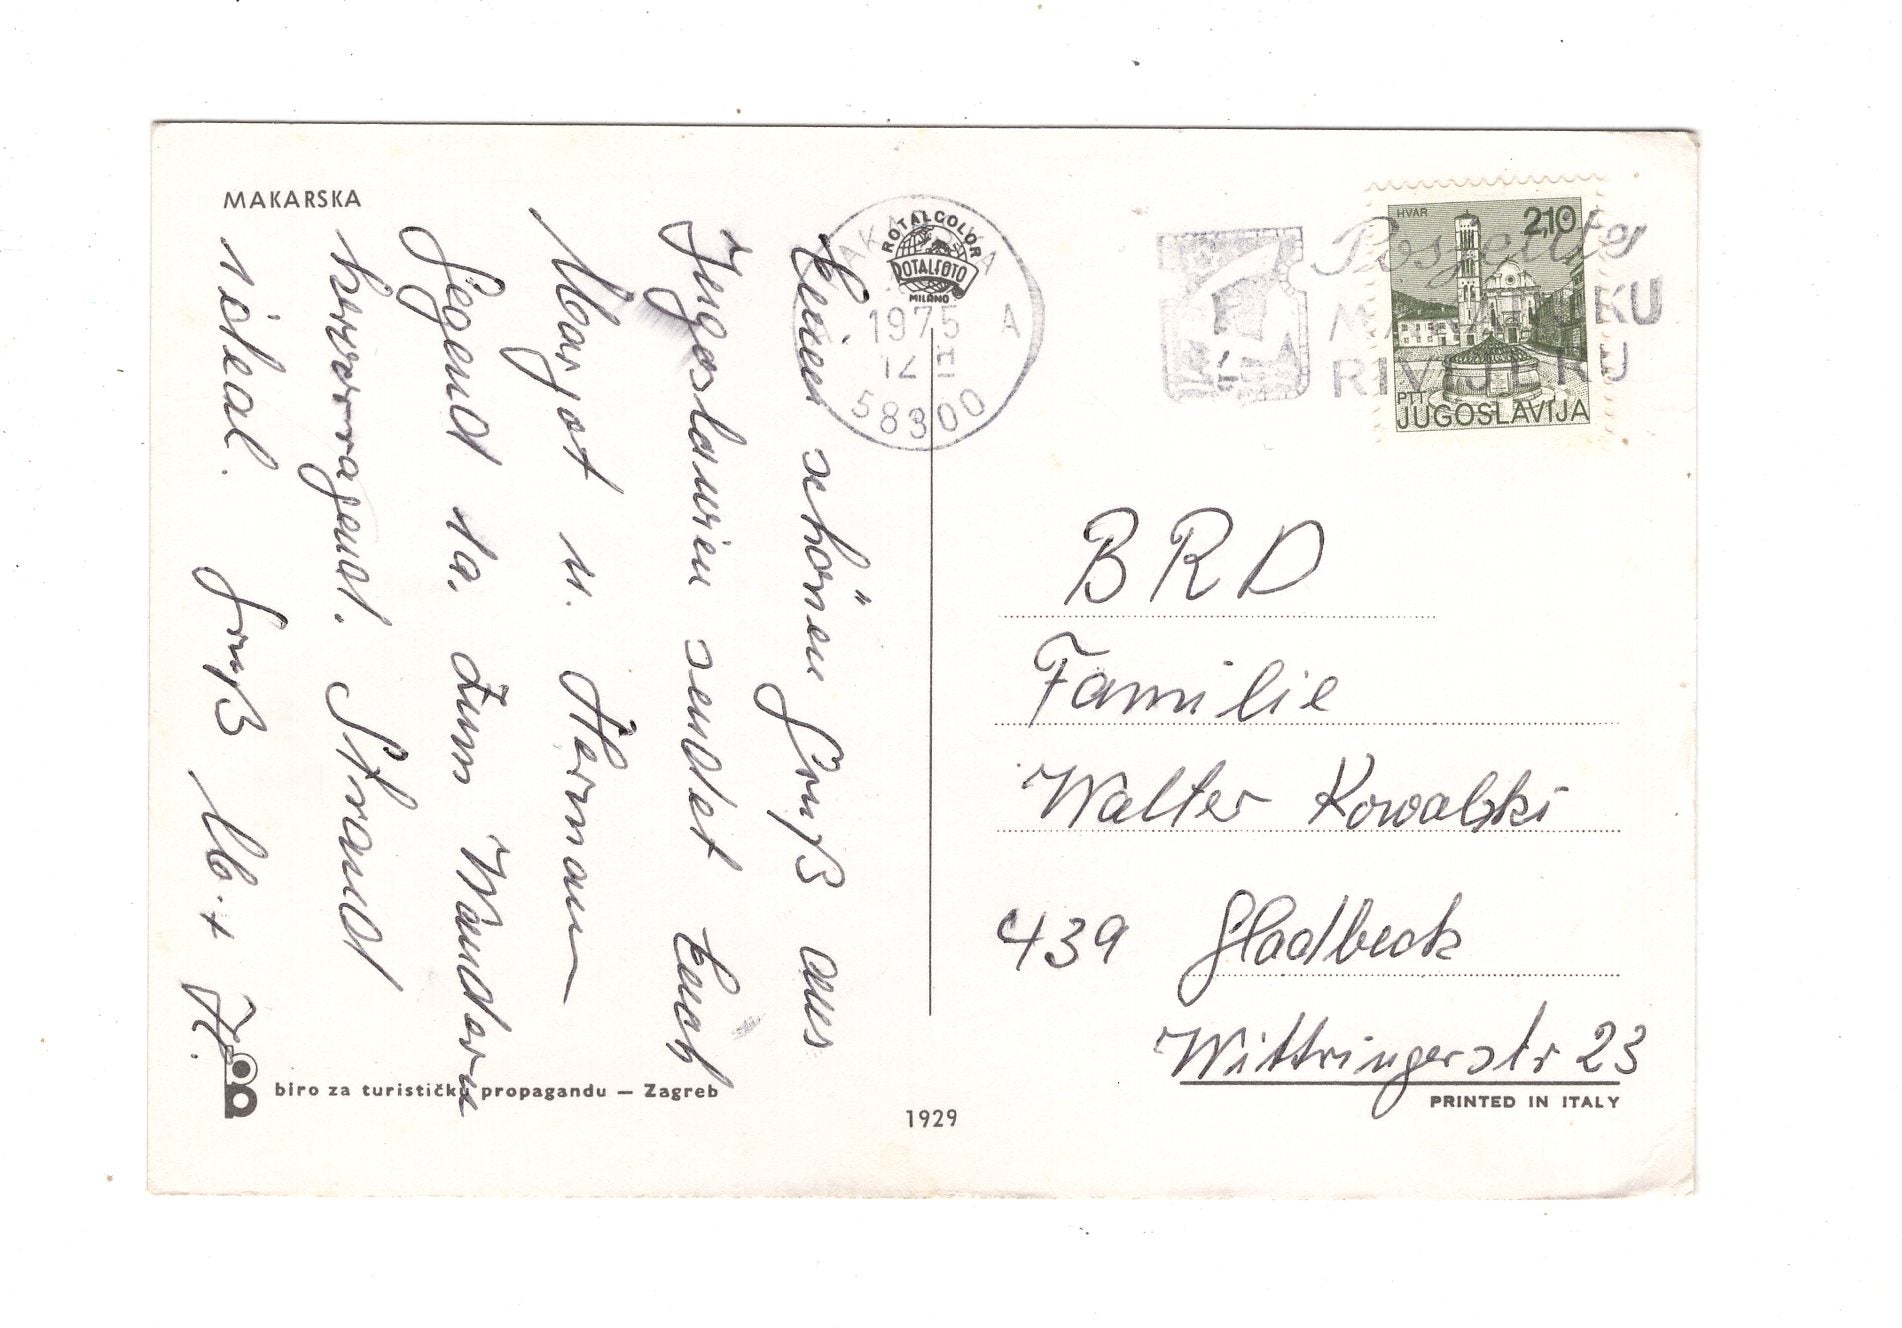 MAKARSKA
Einen schönen Gruß aus
Jugoslawien sendet Euch
Margot u. Hermann
Gegend 1a. Zum Wandern
hervorragend. Strand
ideal. Gruß M. + H.
biro za turističku propagandu — Zagreb
1929
ROTALCOLOR
ROTALFOTO
MILANO
1975
12
A
58300
Posjetite
MAKARSKU
RIVIJERU
HVAR
2,10
PTT
JUGOSLAVIJA
BRD
Familie
Walter Kowalski
439 Gladbeck
Wittringerstr 23
PRINTED IN ITALY